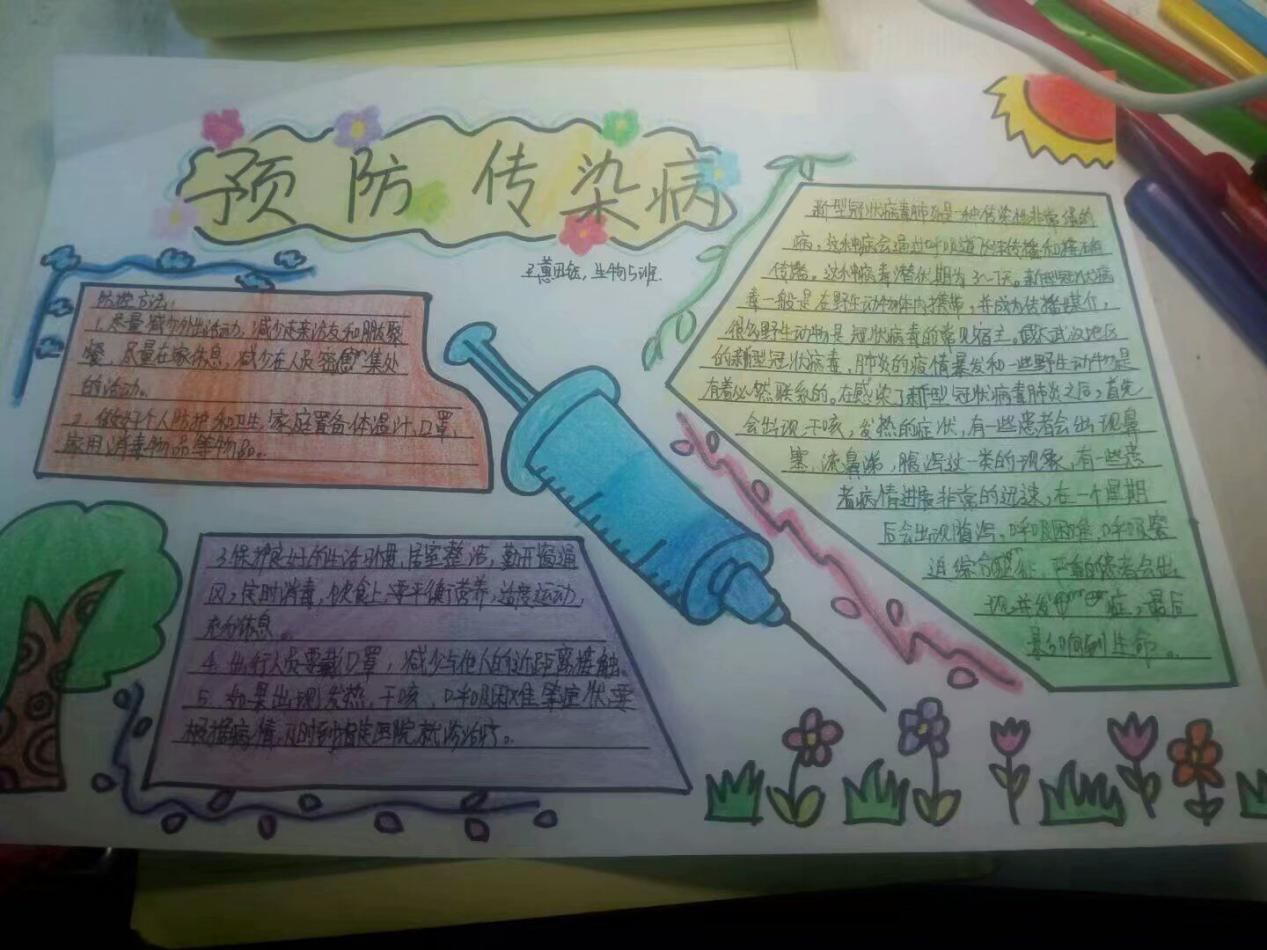 预防传染病
王蕙田钰,生物5班.
防控方法:
1.尽量减少外出活动,减少走亲访友和朋友聚
餐,尽量在家休息,减少在人员密集处
的活动。
2.做好个人防护和卫生,家庭置备体温计,口罩,
家用消毒物品等物品。
3.保护良好的生活习惯,居室整洁,勤开窗通
风,定时消毒,饮食上要平衡营养,适度运动,
充分休息。
4.出行人员要戴口罩,减少与他人的近距离接触。
5.如果出现发热,干咳,呼吸困难等症状要
根据病情,及时到指定医院就诊治疗。
新型冠状病毒肺炎是一种传染性非常强的
病,这种病会通过呼吸道飞沫传播和接触
传播。这种病毒潜伏期为3~7天。新型冠状病
毒一般是在野生动物体内携带,并成为传播媒介,
很多野生动物是冠状病毒的常见宿主。武汉地区
的新型冠状病毒,肺炎的疫情暴发和一些野生动物是
有着必然联系的。在感染了新型冠状病毒肺炎之后,首先
会出现干咳,发热的症状,有一些患者会出现鼻
塞,流鼻涕,腹泻这一类的现象,有一些患
者病情进展非常的迅速,在一个星期
后会出现 呼吸困难,呼吸窘
迫综合征,严重的患者会出
现并发症,最后
影响到生命。